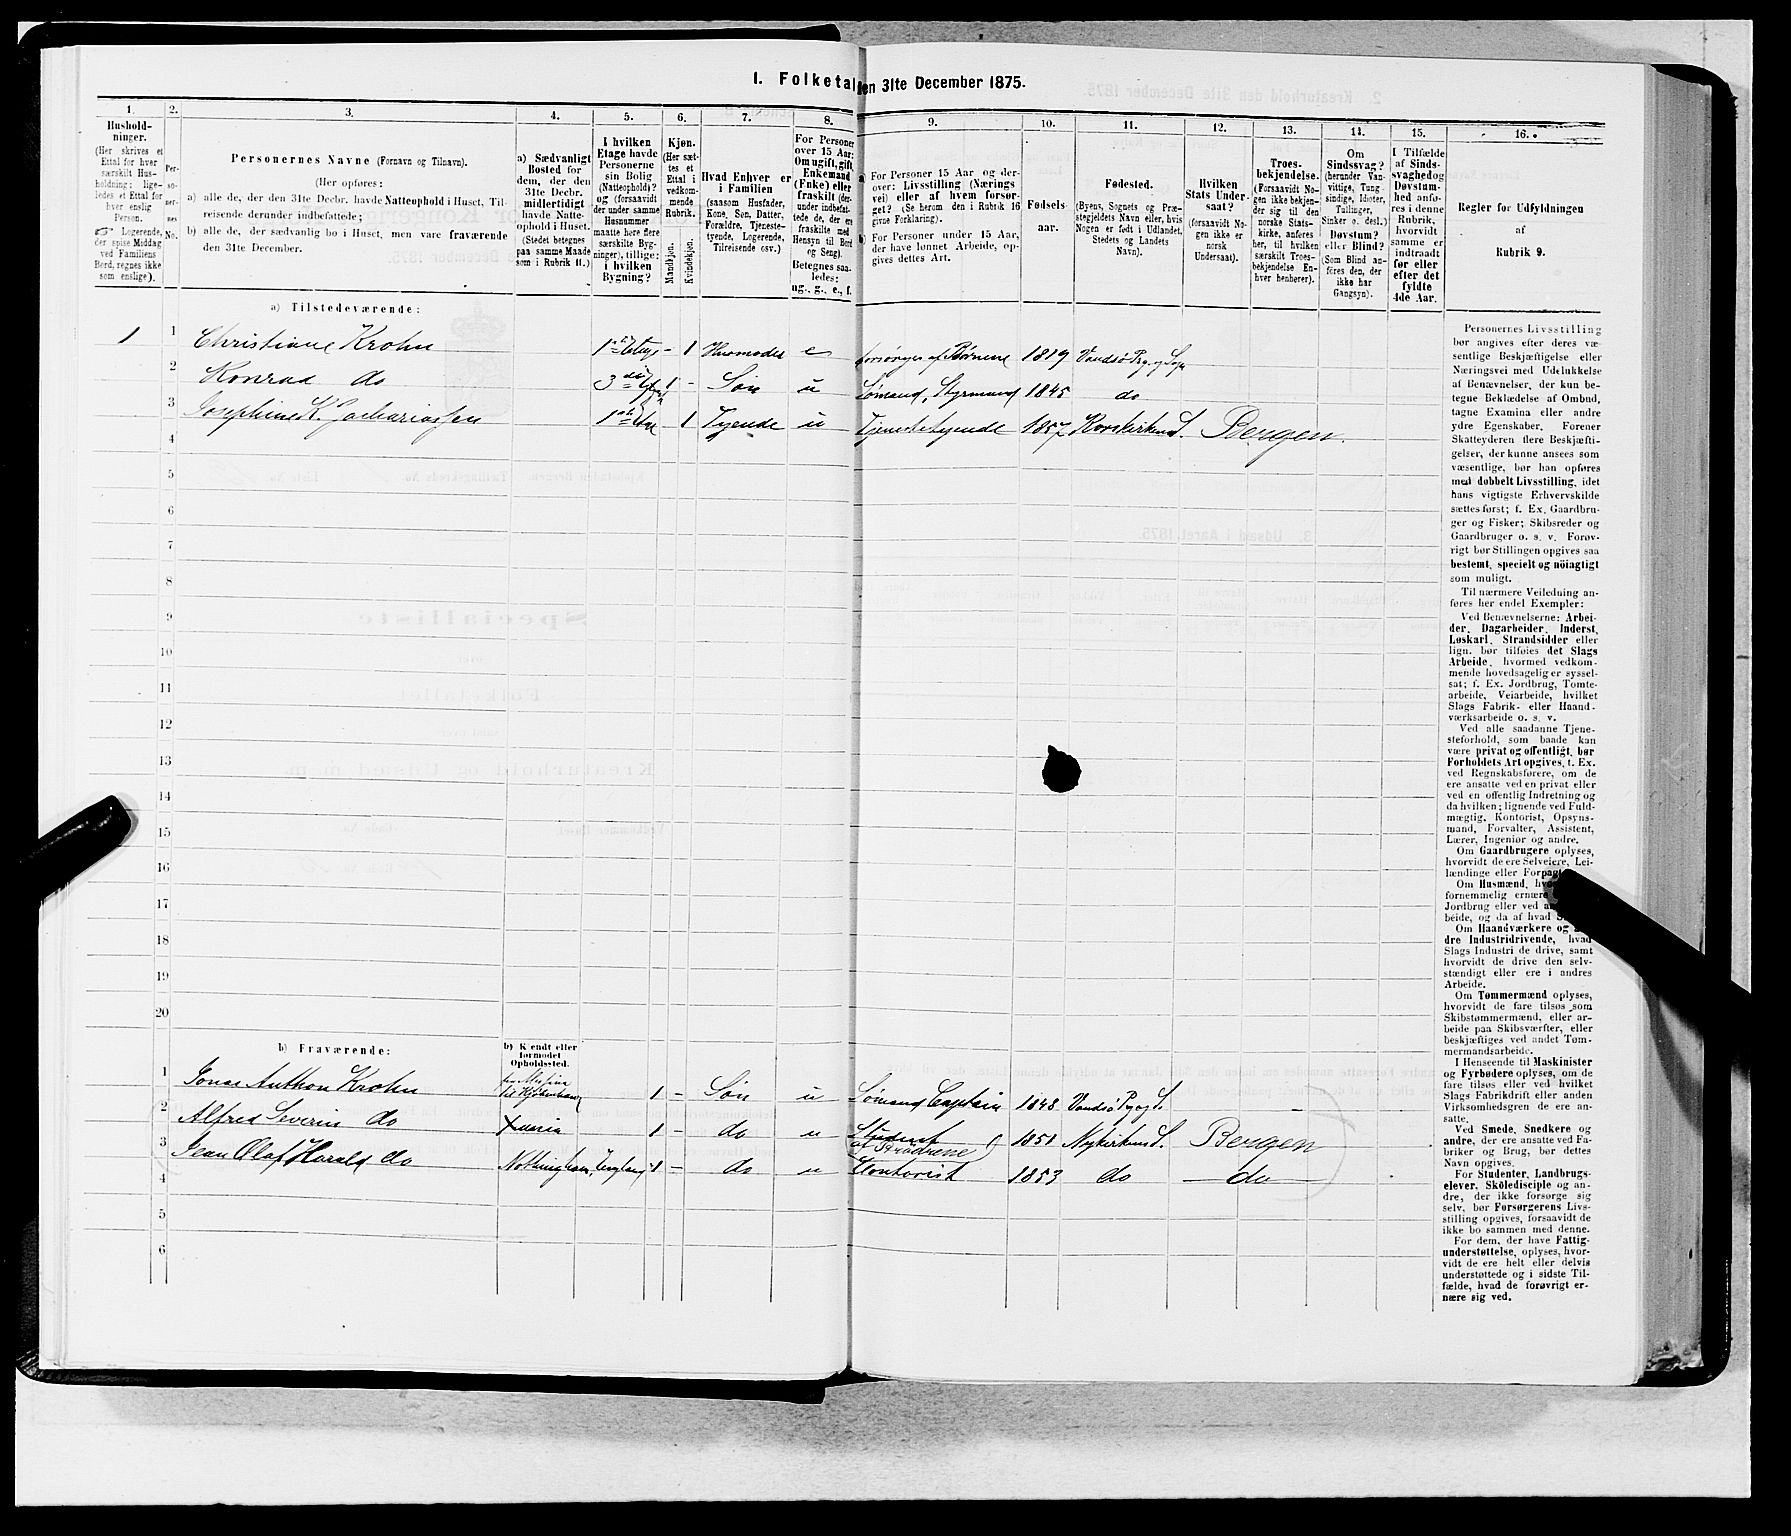 1. Folketal den 31te December 1875.
1. 2. 3. 4. 5. 6. 7. 8. 9. 10. 11. 12. 13. 14. 15. 16.
Hushold-
ninger.
(Her skrives et
Ettal for hver
særskilt Hus-
holdning; lige-
ledes et Ettal for
hver enslig
Person.
Logerende,
der spise Middag
ved Familiens
Bord, regnes ikke
som enslige).
Per-
so-
ner-
nes
No.
Personernes Navne (Fornavn og Tilnavn).
(Her opføres:
a) alle de, der den 31te Decbr. havde Natteophold i Huset, Til-
reisende derunder indbefattede;
b) alle de, der sædvanlig bo i Huset, men vare fraværende
den 31te December.
a) Sædvanligt
Bosted for
dem, der den
31te Decbr.
midlertidigt
havde Natte-
ophold i Huset.
(Stedet betegnes
paa samme Maade
som i Rubrik 11.)
I hvilken
Etage havde
Personerne
sin Bolig
(Natteophold)?
og (forsaavidt
der under samme
Husnummer
maatte høre flere
særskilte Byg-
ninger), tillige:
i hvilken
Bygning?
Kjøn.
(Her sæt-
tes et
Ettal i
vedkom-
mende
Rubrik.
Mandkjøn.
Kvindekjøn.
Hvad Enhver er
i Familien
(saasom Husfader,
Kone, Søn, Datter,
Forældre, Tjeneste-
tyende, Logerende,
Tilreisende osv.)
For Personer
over 15 Aar:
Om ugift, gift,
Enkemand
(Enke) eller
fraskilt (der-
under indbefat-
tede de, der ere
fraskilte med
Hensyn til Bord
og Seng).
Betegnes saa-
ledes:
ug., g., e., f.
a) For Personer 15 Aar og der-
over: Livsstilling (Nærings
vei) eller af hvem forsør-
get? (Se herom den i Rubrik 16
givne Forklaring).
b) For Personer under 15 Aar,
der have lønnet Arbeide, op-
gives dettes Art.
Fødsels-
aar.
Fødested.
(Byens, Sognets og Præ-
stegjeldets Navn eller, hvis
Nogen er født i Udlandet,
Stedets og Landets
Navn).
Hvilken
Stats Under-
saat?
(forsaavidt No-
gen ikke er
norsk
Undersaat).
Troes-
bekjendelse.
(Forsaavidt No-
gen ikke bekjen-
der sig til den
norske Stats-
kirke, anføres
her, til hvilken
særskilt Troes-
bekjendelse En-
hver henhører).
Om
Sindssvag?
(herunder Van-
vittige, Tung-
sindige, Idioter,
Tullinger,
Sinker o. desl.)
Døvstum?
eller Blind?
(Som Blind an-
føres den, der
ikke har
Gangsyn).
I Tilfælde
af Sinds-
svaghed og
Døvstum-
hed anfø-
res i denne
Rubrik,
hvorvidt
samme er
indtraadt
før eller
efter det
fyldte
4de Aar.
Regler for Udfyldningen
af
Rubrik 9.
a) Tilstedeværende:
1 1 Christiane Krohn - 1 Husmoder e forsørges af Børnene 1819
2 Konrad do 1 - Søn u Sømand, Styrmand 1845 do
3 Josephine K. Zachariassen - 1 Tyende u Tjenestetyende 1857 Korskirkens S. Bergen.
4
5
6
7
8
9
10
11
12
13
14
15
16
17
18
19
20
b) Fraværende:
b) Kjendt eller
formodet
Opholdssted.
1 Jonas Anthon Krohn 1 - Søn u Sømand Captain 1848
2 Alfred Severin do 1 - do u Student 1851 Nykirkens S. Bergen
af Brødrene
3 Jean Olaf Harald do Nottingham, England 1 - do u Contorist 1853 do do
4
5
6
Personernes Livsstilling
bør angives efter deres væ-
sentlige Beskjæftigelse eller
Næringsvei med Udelukkelse
af Benævnelser, der kun be-
tegne Beklædelse af Ombud,
tagne Examina eller andre
ydre Egenskaber. Forener
Skatteyderen flere Beskjæfti-
gelser, der kunne ansees som
væsentlige, bør han opføres
med dobbelt Livsstilling, idet
hans vigtigste Erhvervskilde
sættes først; f. Ex. Gaardbru-
ger og Fisker; Skibsreder og
Gaardbruger o. s. v. Forøv-
rigt bør Stillingen opgives saa
bestemt, specielt og nöiagtigt
som muligt.
Til nærmere Veiledning an-
føres her endel Exempler:
Ved Benævnelserne: Arbei-
der, Dagarbeider, Inderst,
Løskarl, Strandsidder eller
lign. bør tilføies det Slags
Arbeide, hvormed vedkom-
mende hovedsagelig er syssel-
sat; f. Ex. Jordbrug, Tomte-
arbeide, Veiarbeide, hvilket
Slags Fabrik- eller Haand-
værksarbeide o. s. v.
Ved alle saadanne Tjene-
steforhold, som baade kan
være privat og offentligt, bør
Forholdets Art opgives, f. Ex.
ved Regnskabsførere, om de
ere ansatte ved en privat eller
ved en offentlig Indretning og
da hvilken; lignende ved Fuld-
mægtig, Kontorist, Opsyns-
mand, Forvalter, Assistent,
Lærer, Ingeniør og andre.
Om Gaardbrugere oplyses,
hvorvidt de ere Selveiere, Lei-
lændinge eller
Om Husmænd,
fornemmelig
Jordbrug eller ved
beide, og da af hvad
Om Haandværkere og
dre Industridrivende, hvad
Slags Industri de drive, samt
hvorvidt de drive den selv-
stændigt eller ere i andres
Arbeide.
Om Tømmermænd oplyses,
hvorvidt de fare tilsøs som
Skibstømmermænd, eller ar-
beide paa Skibsværfter, eller
beskjæftiges ved andet Tøm-
mermandsarbeide.
I Henseende til Maskinister
og Fyrbødere oplyses, om de
fare tilsøs eller ved hvilket
Slags Fabrikdrift eller anden
Virksomhedsgren de ere an-
satte.
Ved Smede, Snedkere og
andre, der ere ansatte ved Fa-
briker og Brug, bør dettes
Navn opgives.
For Studenter, Landbrugs-
elever, Skoledisciple og an-
dre, der ikke forsørge sig
selv, bør Forsørgerens Livs-
stilling opgives, forsaavidt de
ikke bo sammen med denne.
For dem, der have Fattig-
understøttelse, oplyses, hvor-
vidt de ere helt eller delvis
understøttede og i sidste Til-
fælde, hvad de forøvrigt er-
nære sig ved.